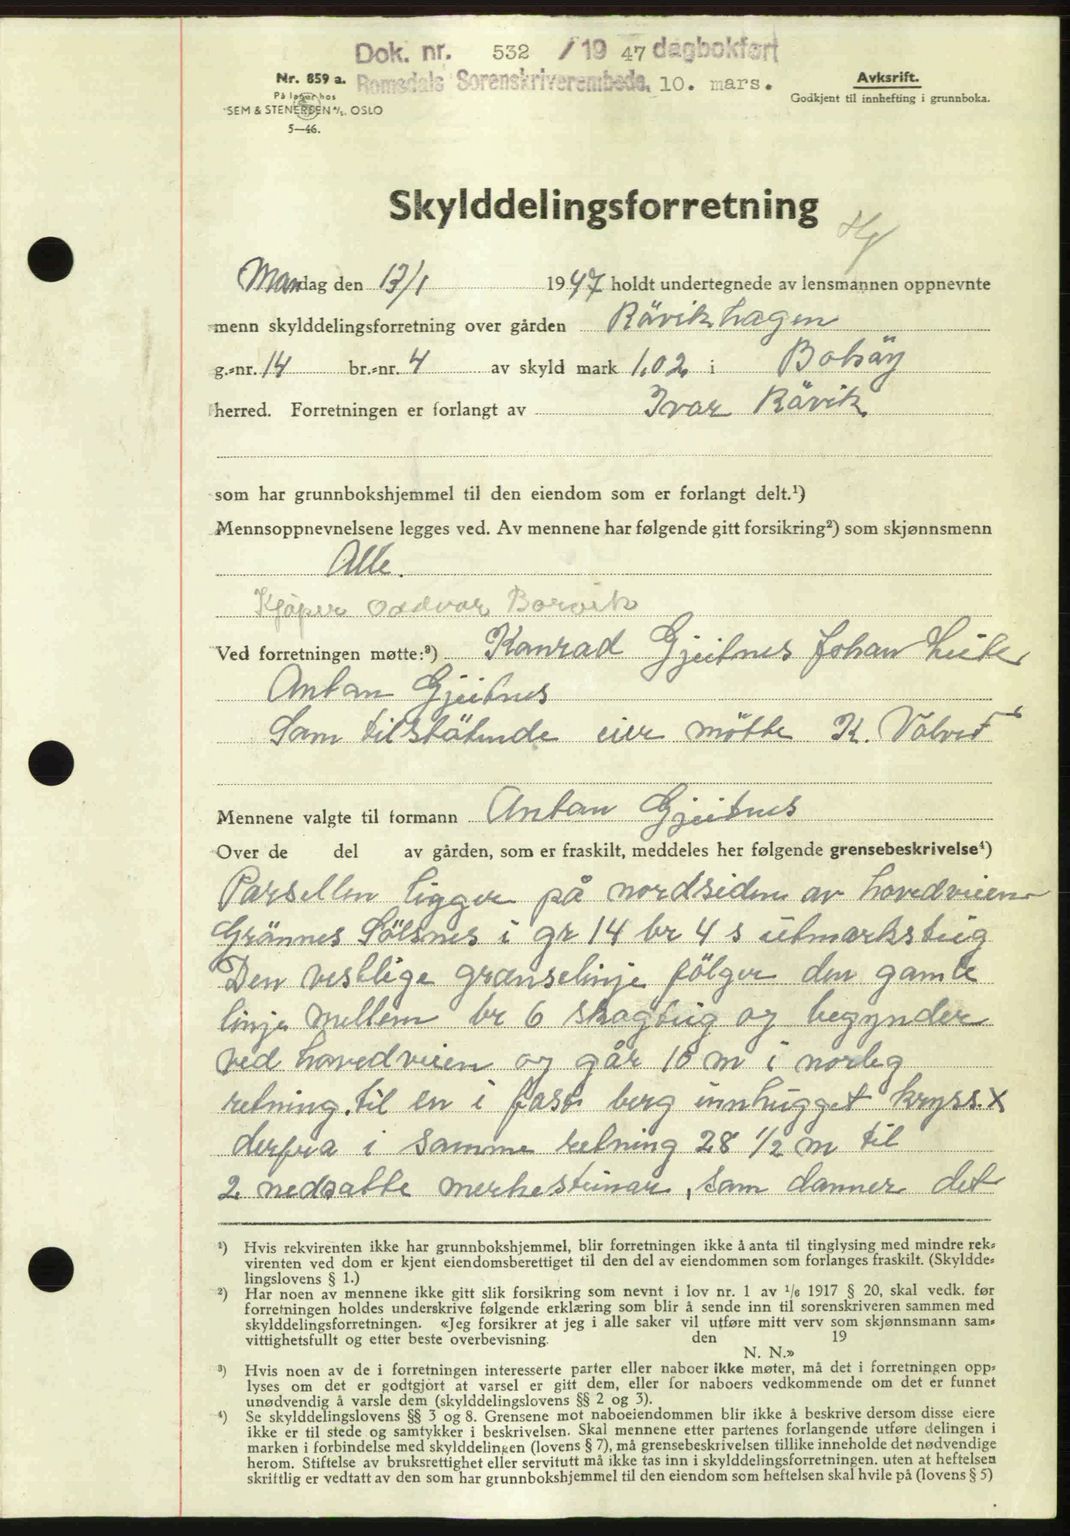 Dok. nr. 532 /19 47 dagbokført
Romsdals Sorenskriverembede, 10. mars.
Nr. 859 a.
På lager hos
SEM & STENERSEN A/S. OSLO
5—46.
Avksrift.
Godkjent til innhefting i grunnboka.
Skylddelingsforretning
Mandag den 13/1 1947 holdt undertegnede av lensmannen oppnevnte
menn skylddelingsforretning over gården Rävikhagen
g.-nr. 14 br.-nr. 4 av skyld mark 1.02. i Bolsöy
herred. Forretningen er forlangt av Ivar Rävik
som har grunnbokshjemmel til den eiendom som er forlangt delt.¹)
Mennsoppnevnelsene legges ved. Av mennene har følgende gitt forsikring²) som skjønnsmenn
Alle.
Kjöper Oddvar Borvik
Ved forretningen møtte:³) Konrad Gjeitnes Johan
Antan Gjeitnes
Sam tilstötende eier mötte K.
Mennene valgte til formann Antan Gjeitnes
Over de del av gården, som er fraskilt, meddeles her følgende grensebeskrivelse⁴)
Parsellen ligger på nordsiden av hovedveien
Grännes Sölsnes i gr 14 br 4 s utmarksteig
Den vestlige grænselinje fölger den gamle
linje mellem br 6 skogteig og begynder
ved hovedveien og går 10 m i norleg
retning til en i fast berg innhugget kryss x
derfra i samme retning 28 ½ m til
2 nedsatte merkesteinar, sam danner det
¹) Hvis rekvirenten ikke har grunnbokshjemmel, blir forretningen ikke å anta til tinglysing med mindre rek-
virenten ved dom er kjent eiendomsberettiget til den del av eiendommen som forlanges fraskilt. (Skyldde-
lingslovens § 1.)
²) Har noen av mennene ikke gitt slik forsikring som nevnt i lov nr. 1 av 1/6 1917 § 20, skal vedk. før
forretningen holdes underskrive følgende erklæring som blir å sende inn til sorenskriveren sammen med
skylddelingsforretningen. «Jeg forsikrer at jeg i alle saker vil utføre mitt verv som skjønnsmann sam-
vittighetsfullt og etter beste overbevisning. den 19
N. N.»
³) Hvis noen av de i forretningen interesserte parter eller naboer ikke møter, må det i forretningen opp-
lyses om det er godtgjort at varsel er gitt dem, eller for naboers vedkommende om det er funnet
unødvendig å varsle dem (skylddelingslovens §§ 2 og 3).
⁴) Se skylddelingslovens §§ 3 og 8. Grensene mot naboeiendommen blir ikke å beskrive dersom disse eiere
ikke er til stede og samtykker i beskrivelsen. Skal mennene etter partenes forlangende utføre delingen i
marken i forbindelse med skylddelingen (lovens § 7), må grensebeskrivelsen tillike inneholde det nødvendige
herom. Stiftelse av bruksrettighet eller servitutt må ikke tas inn i skylddelingsforretningen. uten at heftelsen
skriftlig er vedtatt av den som har grunnbokshjemmel til den eiendom som heftelsen skal hvile på (lovens § 5)